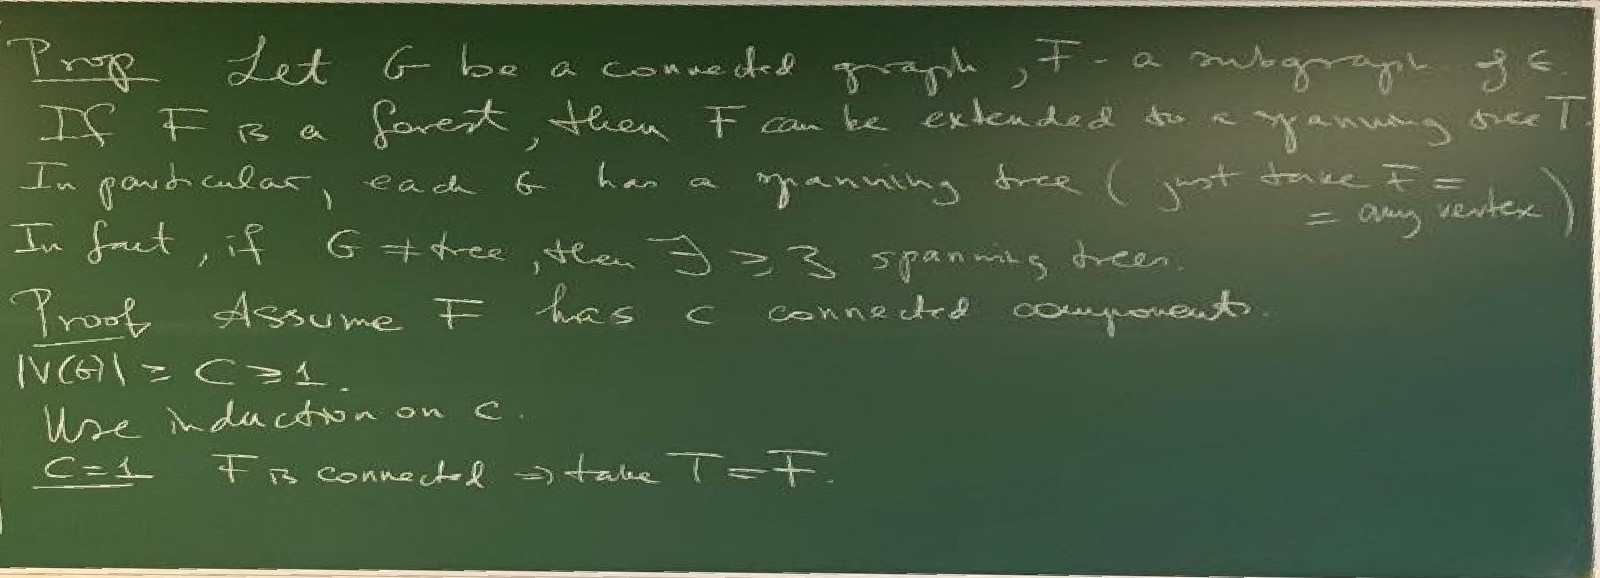 Prop Let G be a connected graph, F - a subgraph of G.
If F is a forest, then F can be extended to a spanning tree T.
In particular, each G has a spanning tree (just take F =
= any vertex)
In fact, if G ≠ tree, then ∃ ≥ 3 spanning trees.
Proof Assume F has c connected components.
|V(G)| ≥ C ≥ 1.
Use induction on c.
C=1 F is connected ⇒ take T = F.